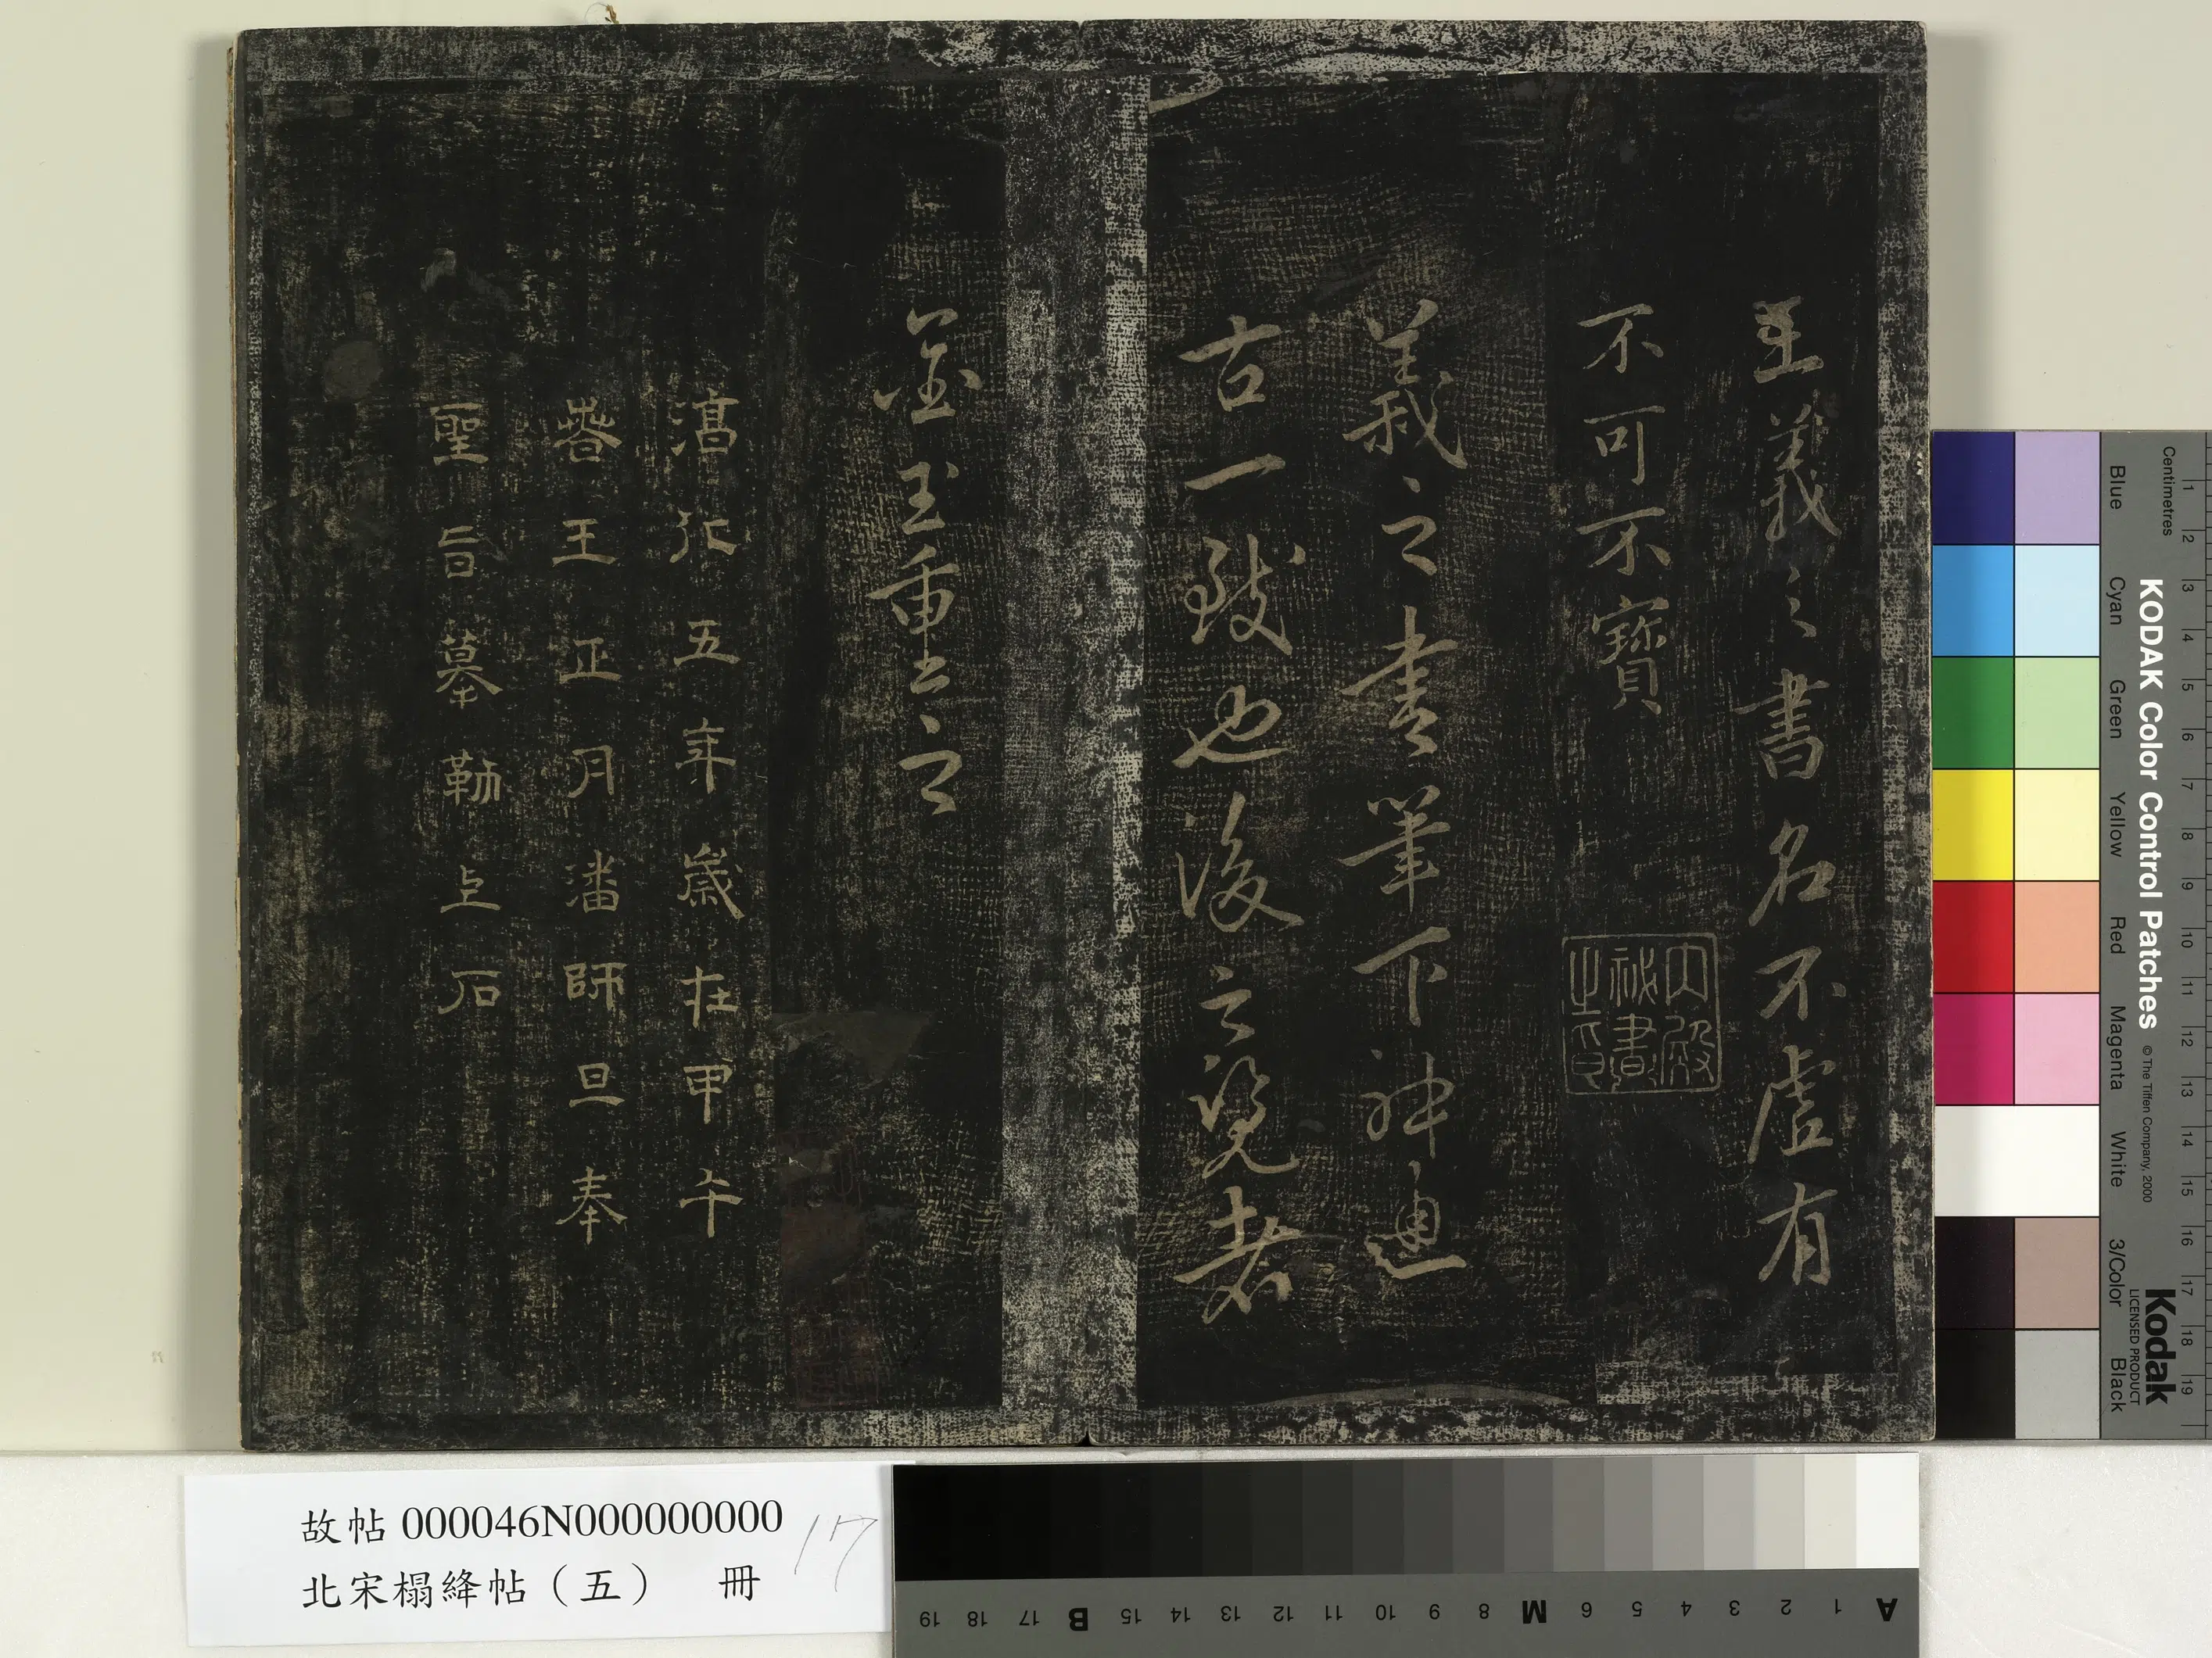 王羲之書名不虛有
不可不寶
內殿
祕書
之印
羲之書筆下神通
古一致也後之覽者
金玉重之
淳化五年歲在甲午
春王正月潘師旦奉
聖旨摹勒上石
故帖 000046N000000000
北宋榻絳帖（五） 冊
17
KODAK Color Control Patches © The Tiffen Company, 2000
Kodak
LICENSED PRODUCT
Centimetres
Blue Cyan Green Yellow Red Magenta White 3/Color Black
1 2 3 4 5 6 7 8 9 10 11 12 13 14 15 16 17 18 19
A 1 2 3 4 5 6 M 8 9 10 11 12 13 14 15 B 17 18 19